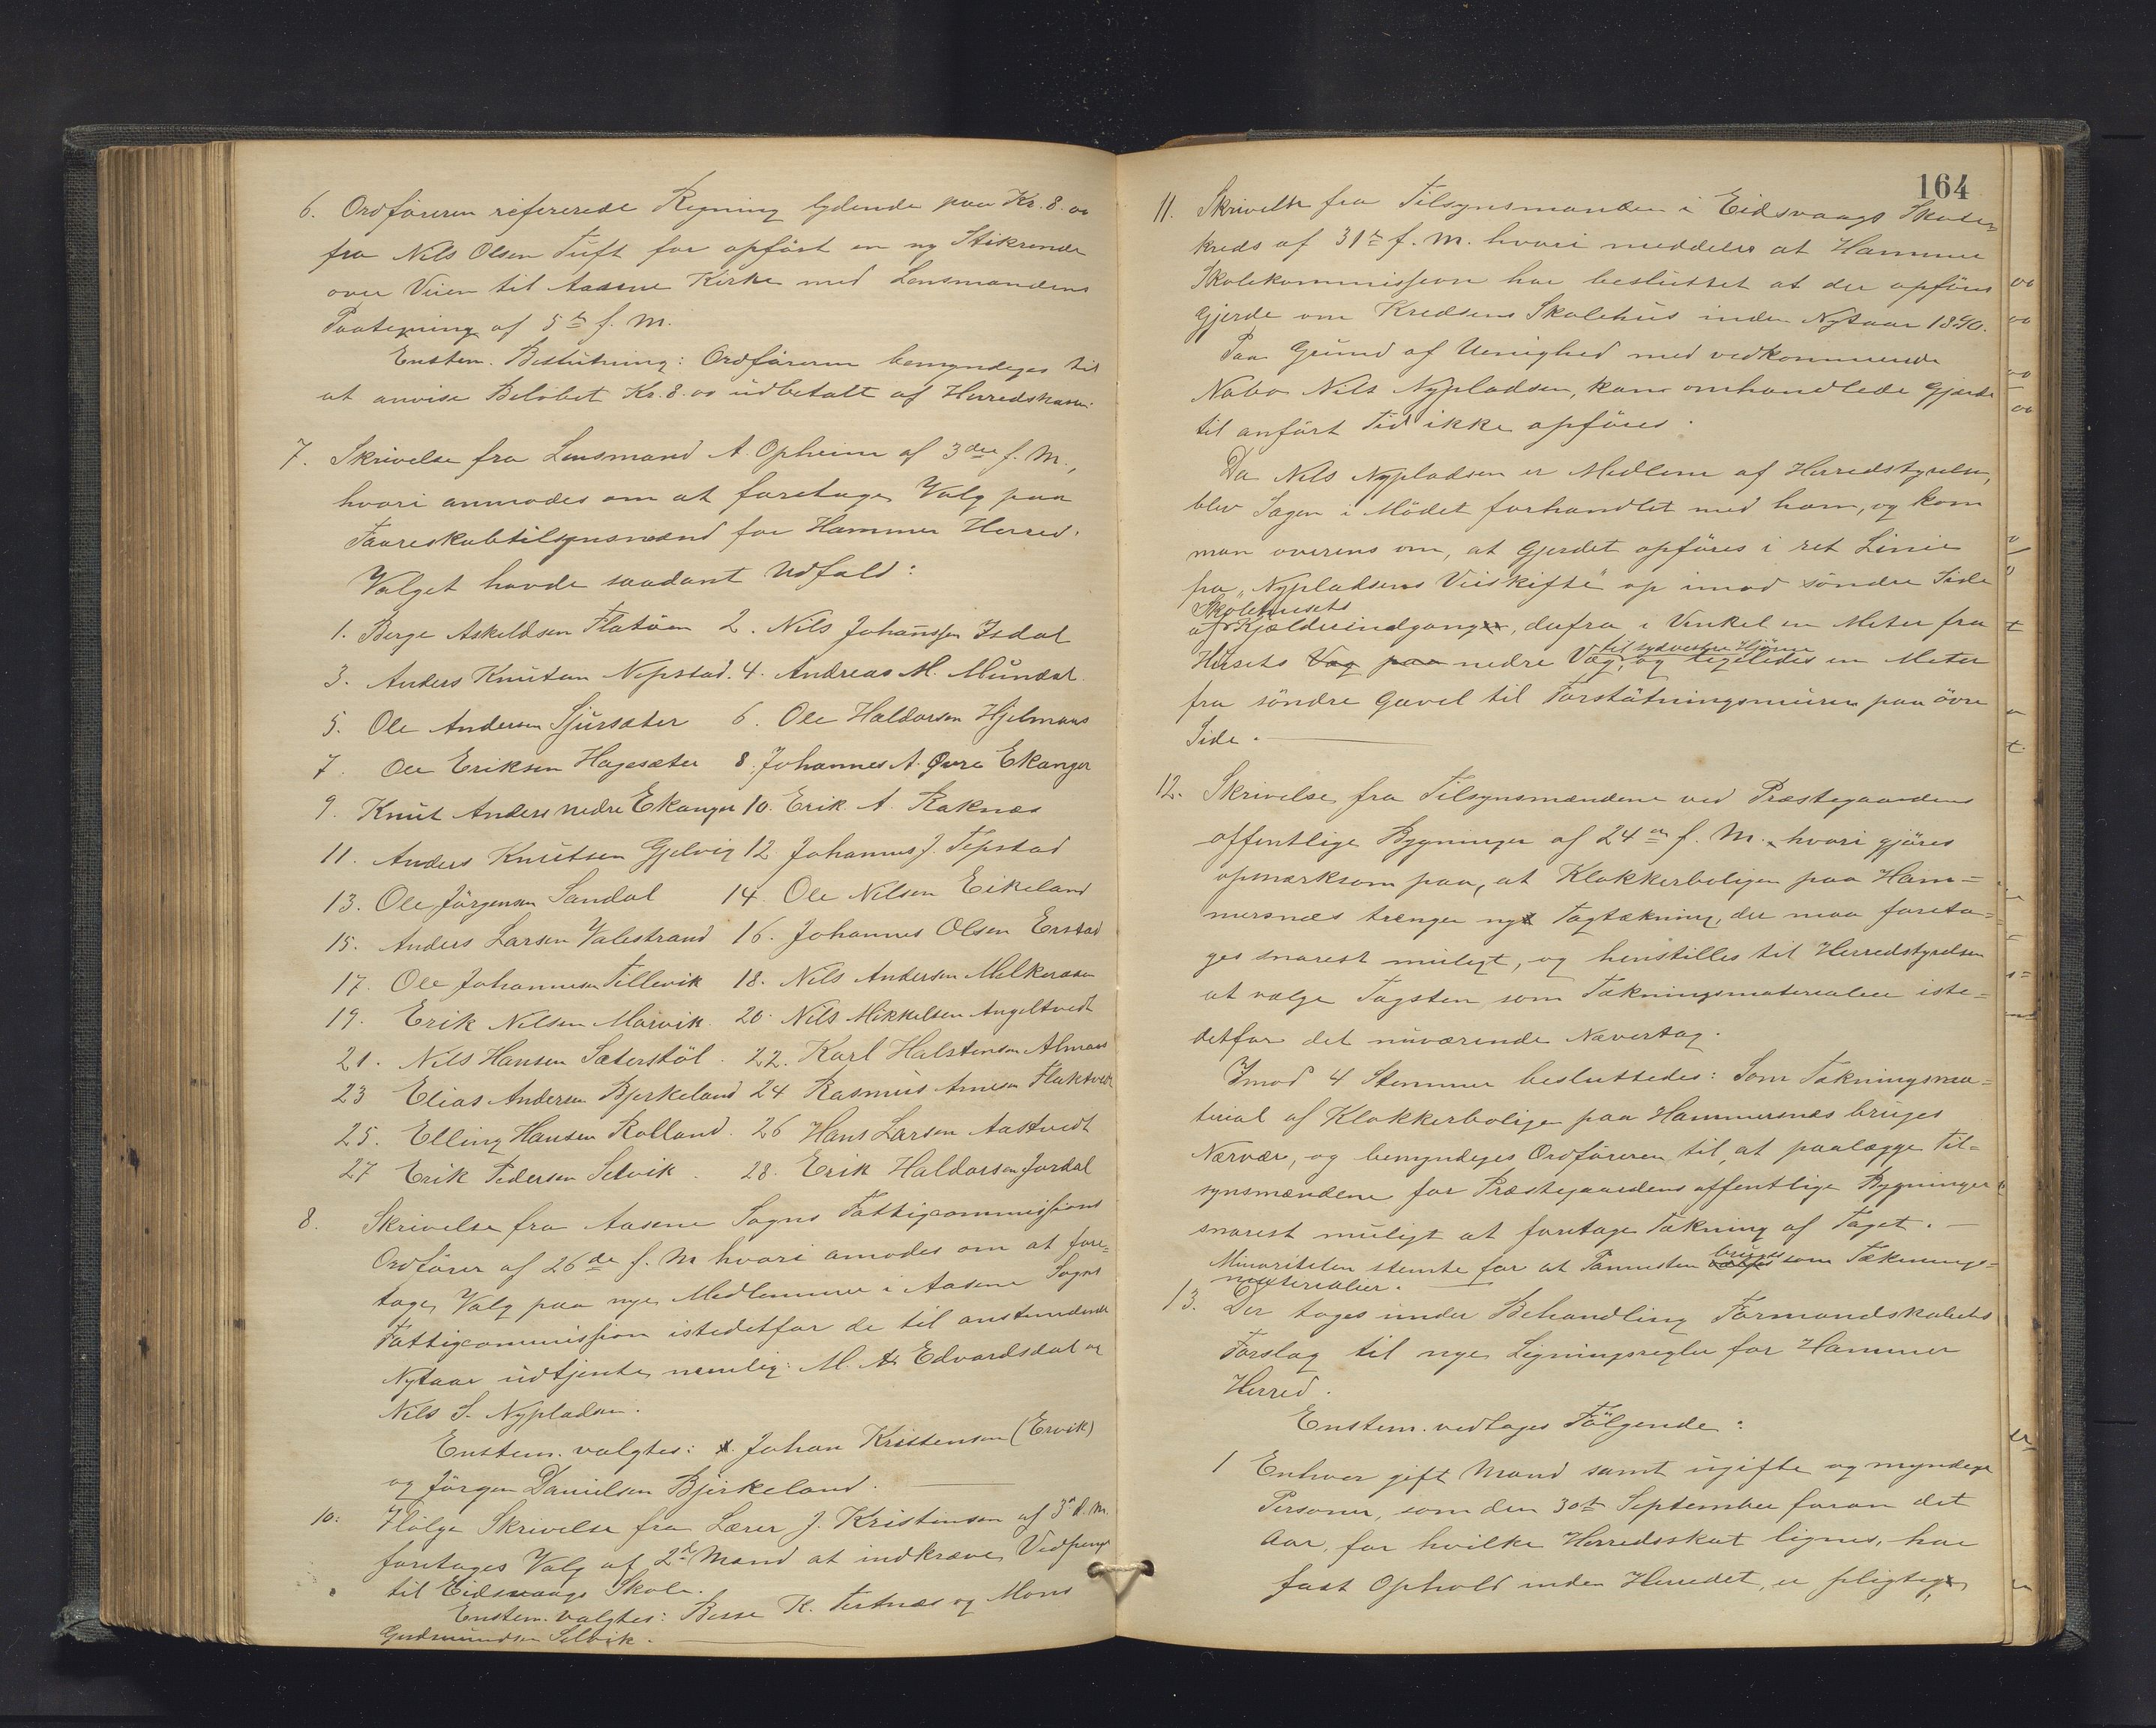 6. Ordföreren refererede Regning lydende paa Kr. 8.00
fra Nils Olsen Tuft for opfört en ny Stikrende
over Veien til Aasene Kirke med Lensmandens
Paategning af 5te f. M.
Enstem. Beslutning: Ordföreren bemyndiges til
at anvise Belöbet Kr. 8.00 udbetalt af Herredskassen.
7. Skrivelse fra Lensmand A. Opheim af 3die f. M.,
hvori anmodes om at foretage Valg paa
Faareskabtilsynsmænd for Hammer Herred.
Valget havde saadant Udfald:
1. Berge Askeldsen Flatöen 2. Nils Johanssen Isdal
3. Anders Knutsen Nepstad. 4. Andreas M. Mundal
5. Ole Andersen Sjursæter 6. Ole Haldorsen Hjelmaas
7. Ole Eriksen Hagesæter 8. Johannes A. Øvre Ekanger
9. Knut Anders nedre Ekanger 10. Erik A. Raknes
11. Anders Knutsen Gjelvig 12. Johannes J. Tepstad
13. Ole Jörgensen Sandal 14. Ole Nilsen Eikeland
15. Anders Larsen Valestrand 16. Johannes Olsen Erstad
17. Ole Johannesen Tellevik 18. Nils Andersen Melkeraaen
19. Erik Nilsen Morvik. 20. Nils Mikkelsen Angeltvedt
21. Nils Hansen Sæterstöl. 22. Karl Halstensen Almaas
23 Elias Andersen Bjerkeland 24 Rasmus Arnesen Flaktvedt
25. Elling Hansen Rolland. 26 Hans Larsen Aastvedt
27 Erik Pedersen Selvik. 28. Erik Haldorsen Jordal
8. Skrivelse fra Aasene Sogns Fattigcommissions
Ordförer af 26de f. M hvori amodes om at fore-
tage Valg paa nye Medlemmer i Aasene Sogns
Fattigcommission istedetfor de til anstundende
Nytaar udtjente nemlig: M. A. Edvardsdal og
Nils S. Nypladsen.
Enstem. valgtes: Johan Kristensen (Ervik)
og Jörgen Danielsen Bjerkeland.
10: Ifölge Skrivelse fra Lærer J. Kristensen af 3die d. M.
foretages Valg af 2de Mænd at indkræve Vedpenge
til Eidsvaags Skole.
Enstem. valgtes: Berse K. Tertnæs og Mons
Gudmundsen Selvik.
164
11. Skrivelse fra Tilsynsmanden i Eidsvaags Skole-
kreds af 31te f. M. hvori meddeles at Hammer
Skolekommission har besluttet at der opföres
Gjerde om Kredsens Skolehus inden Nytaar 1890.
Paa Grund af Uenighed med vedkommende
Nabo Nils Nypladsen, kan omhandlede Gjerde
til anfört Tid ikke opföres.
Da Nils Nypladsen er Medlem af Herredstyrelsen,
blev Sagen i Mödet forhandlet med ham, og kom
man overens om, at Gjerdet opföres i ret Linie
fra "Nypladsens Veiskifte" op imod söndre Side
Skolehusets
af Kjælderindgangen, derfra i Vinkel en Meter fra
til sydvestre Hjörne
Husets Væg paa nedre Væg, og ligeledes en Meter
fra söndre Gavel til Forstötningsmuren paa övre
Side.
12. Skrivelse fra Tilsynsmændene ved Præstegaardens
offentlige Bygninger af 24de f. M. hvori gjöres
opmærksom paa, at Klokkerboligen paa Ham-
mersnæs trænger ny Tagtækning, der maa foreta-
ges snarest muligt, og henstilles til Herredstyrelsen
at vælge Tagsten som Tækningsmaterialier iste-
detfor det nuværende Nævertag.
Imod 4 Stemmer besluttedes: Som Tækningsma-
terial af Klokkerboligen paa Hammersnæs bruges
Nærvær, og bemyndiges Ordföreren til, at paalægge Til-
synsmændene for Præstegaardens offentlige Bygninger
snarest muligt at foretage Tækning af Taget.
bruges
Minoriteten stemte for at Pannesten vælges som Tæknings-
materialier.
13. Der toges under Behandling Formandskabets
Forslag til nye Ligningsregler for Hammer
Herred.
Enstem. vedtages Fölgende:
1 Enhver gift Mand samt ugifte og myndige
Personer, som den 30te September foran det
Aar, for hvilke Herredsskat lignes, har
fast Ophold inden Herredet, er pligtig,